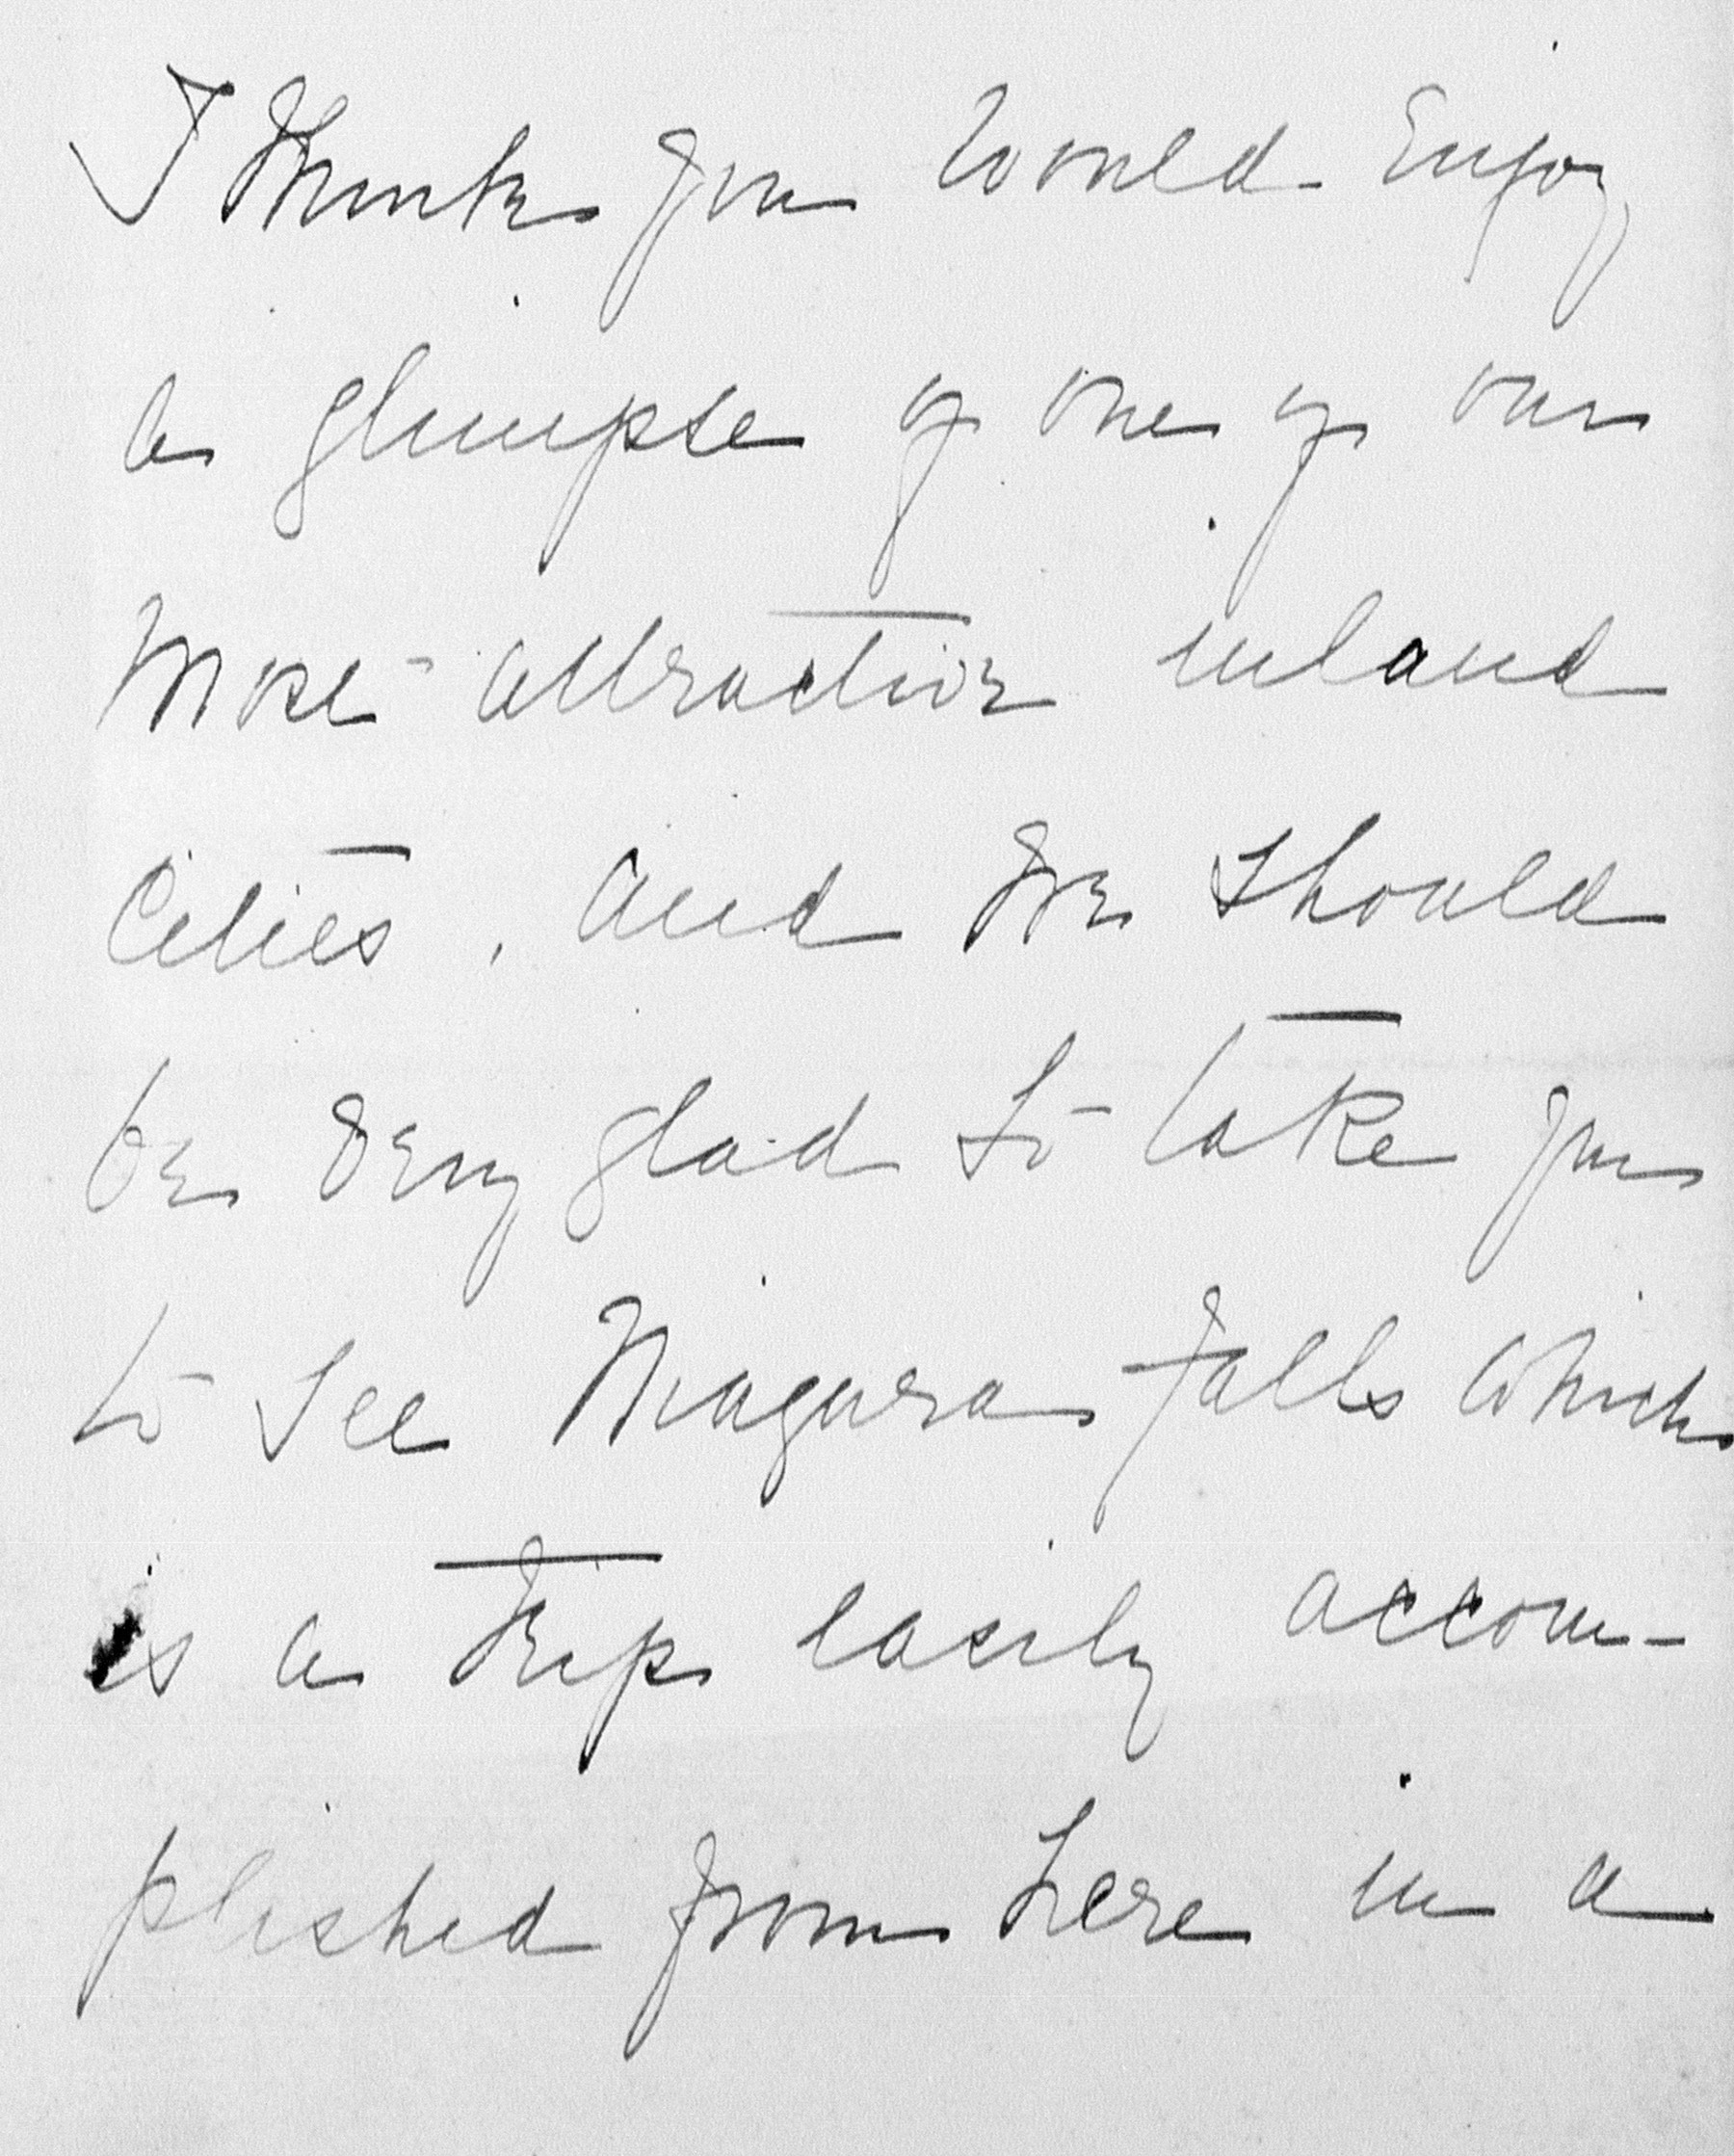 I think you would enjoy
a glimpse of one of our
more attractive inland
Cities, and we should
be very glad to take you
to see Niagara Falls which
is a trip easily accom-
plished from here in a